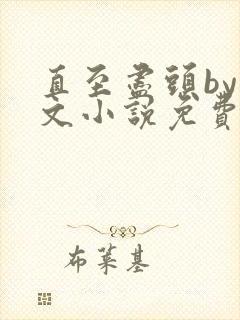 直至盡頭by
文小說免費
布萊基